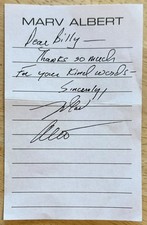 MARV ALBERT
Dear Billy—
Thanks so much
for your kind words—
Sincerely,
Marv
Albert